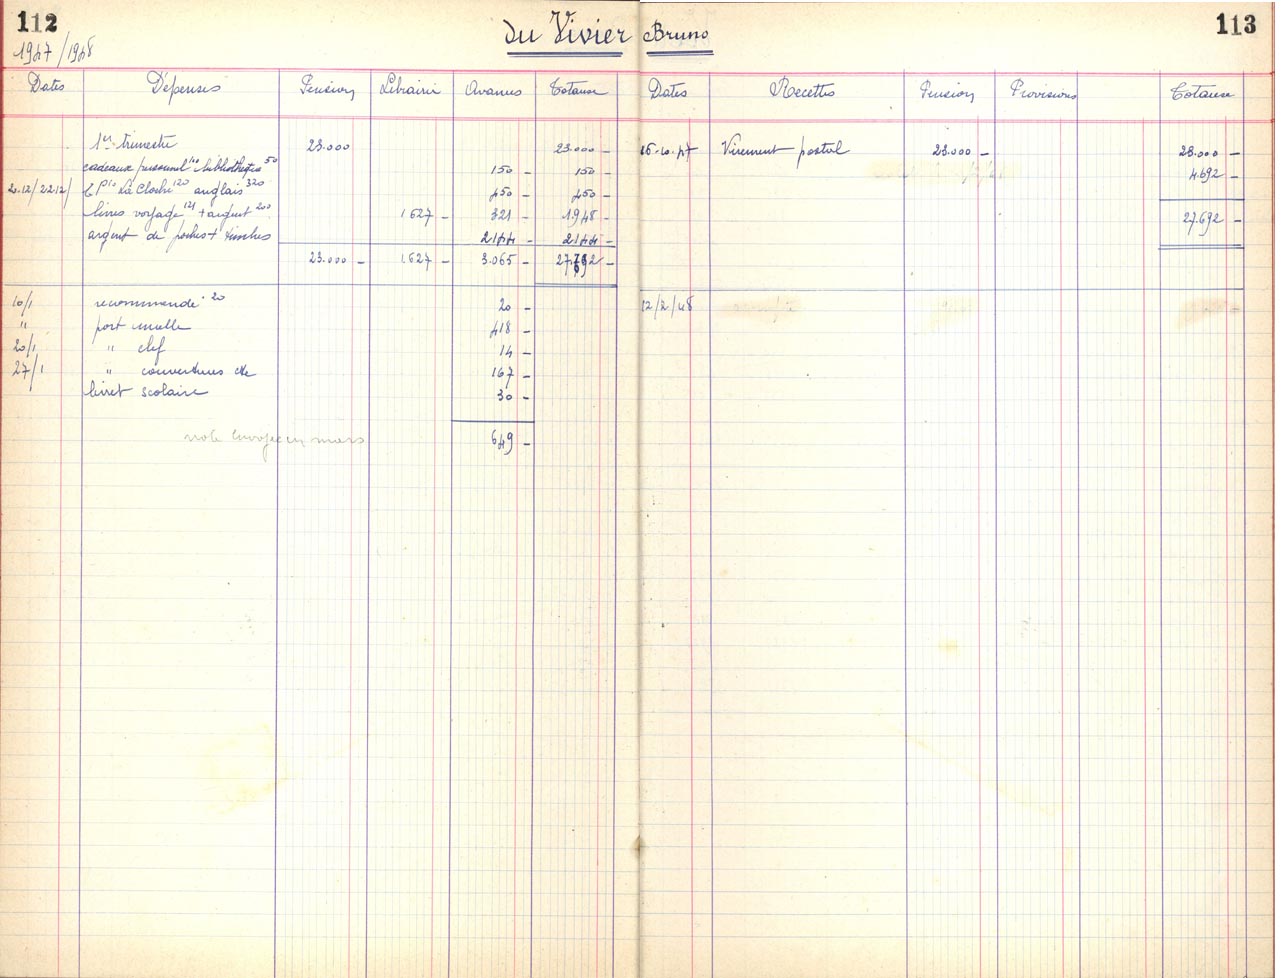 112
113
1947/1948
du Vivier Bruno
Dates Dépenses Pension Librairie Avances Totaux
Dates Recettes Pension Provisions Totaux
1er trimestre 23.000 23.000 -
16-10-47 Virement postal 23.000 - 23.000 -
cadeaux personnel 100 bibliothèque 50 150 - 150 -
4.692 -
20.12/22.12/ La Cloche 120 anglais 320 450 - 450 -
livres voyage 121 + argent 200 1627 - 321 - 1948 -
27.692 -
argent de poche + timbres 2144 - 2144 -
23.000 - 1.627 - 3.065 - 27.692 -
10/1 recommandé 20 20 -
12/2/48
" port malle 418 -
20/1 " clef 14 -
27/1 " couvertures etc 167 -
livret scolaire 30 -
note envoyée en mars 649 -